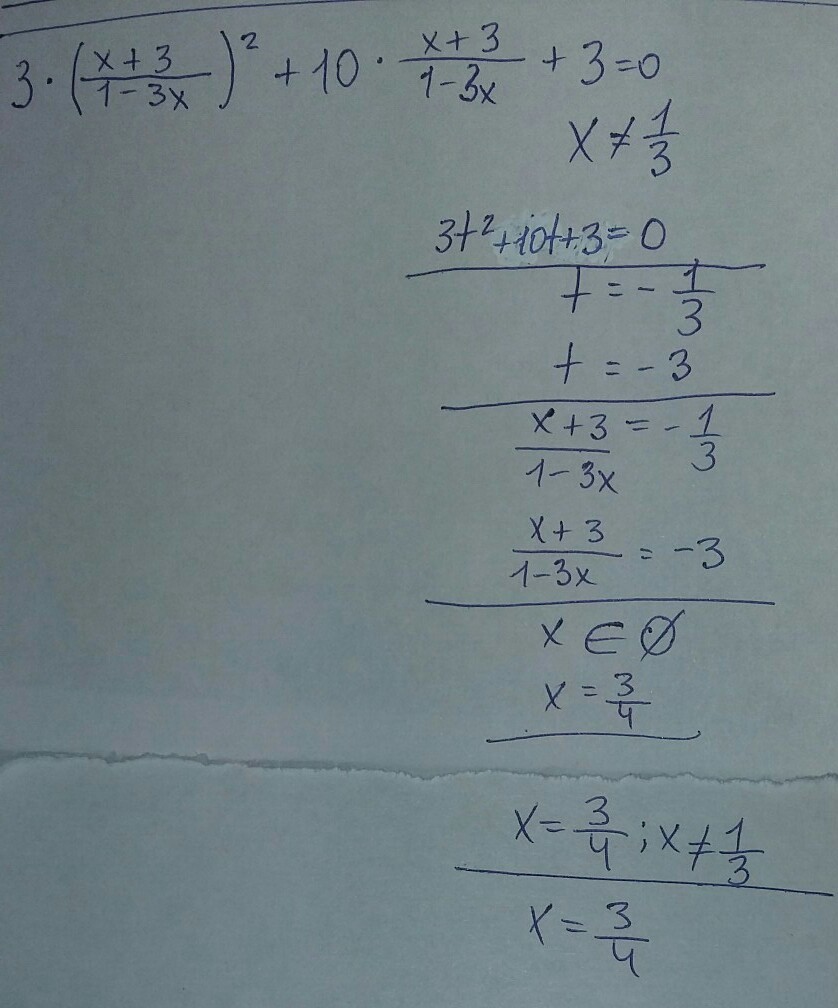 3·((x+3)/(1-3x))² + 10·(x+3)/(1-3x) + 3=0
x ≠ 1/3
3t²+10t+3=0
t = - 1/3
t = -3
(x+3)/(1-3x) = - 1/3
(x+3)/(1-3x) = -3
x ∈ ∅
x = 3/4
x = 3/4 ; x ≠ 1/3
x = 3/4